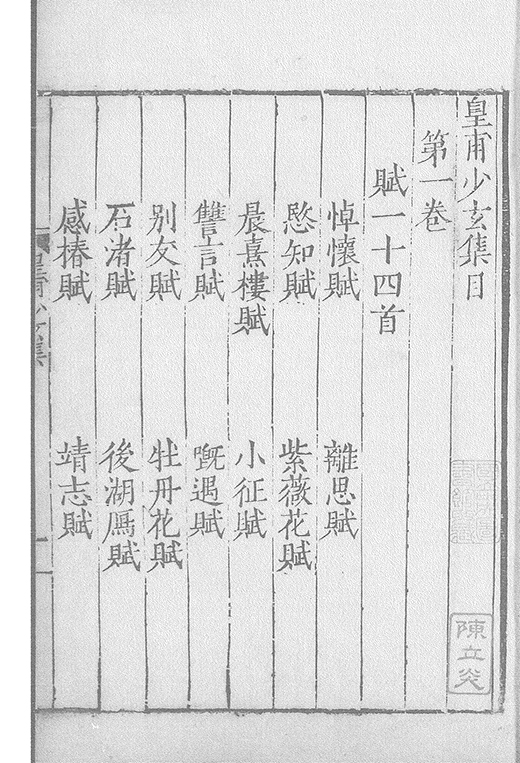 皇甫少玄集目
第一卷
賦一十四首
悼懷賦　離思賦
愍知賦　紫薇花賦
晨熹樓賦　小征賦
讐言賦　嘅遇賦
別友賦　牡丹花賦
石渚賦　後湖鴈賦
感椿賦　靖志賦
陳立炎